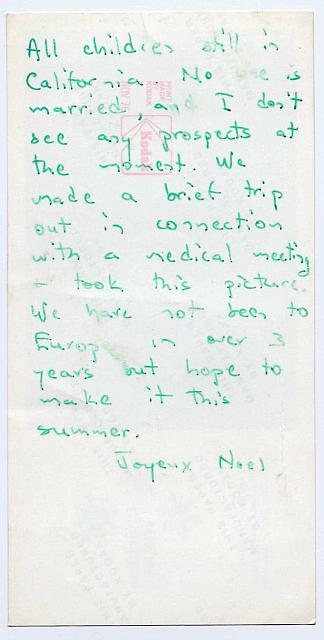 All children still in
California. No one is
married, and I don't
see any prospects at
the moment. We
made a brief trip
out in connection
with a medical meeting
+ took this picture.
We have not been to
Europe in over 3
years but hope to
make it this
summer.
Joyeux Noel
Kodak